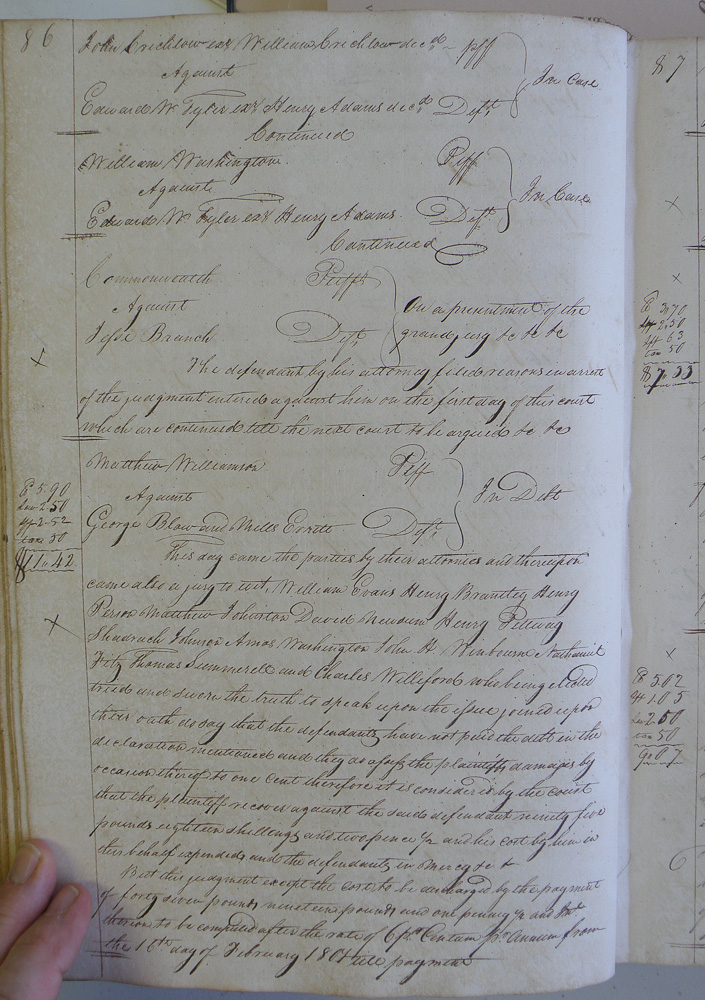 86
John Crichlow exr William Crichlow decd Plff
Against
In Case
Edward W Tyler exr Henry Adams decd Deft
Continued
William Washington Plff
Against
In Case
Edward W Tyler exr Henry Adams Deft
Continued
Commonwealth Plff
Against
On a presentment of the
Jesse Branch Deft
grand jury &c &c &c
The defendant by his attorney filed reasons in arrest
of the judgment entered against him on the first day of this court
which are continued till the next court to be argued &c &c
Matthew Williamson Plff
Against
In Debt
George Blow and Mills Everitt Defts
This day came the parties by their attornies and thereupon
came also a jury to wit, William Evans Henry Brantley Henry
Person Matthew Johnston David Newsum Henry
Shadrach Johnson Amos Washington John H Newbourne Nathaniel
Fitz Thomas Summerell and Charles Williford who being elected
tried and sworn the truth to speak upon the issue joined upon
their oath do say that the defendants have not paid the debt in the
declaration mentioned and they do assess the plaintiffs damages by
occasion thereof to one cent therefore it is considered by the court
that the plaintiff recover against the said defendant ninety five
pounds eighteen shillings and two pence ½ and his cost by him in
this behalf expended and the defendants in mercy &c &
But this judgment except the cost to be discharged by the payment
of forty seven pounds nineteen pounds and one penny ¼ and Int
thereon to be computed after the rate of 6 pr Centum pr annum from
the 10th day of February 1801 till payment
E 5.90
Law 2.50
Shff 2.52
tax 50
$11.42
87
E 3.70
Law 2.50
Shff 63
tax 50
$7.33
E 5.02
Shff 1.05
Law 2.50
tax 50
9.07